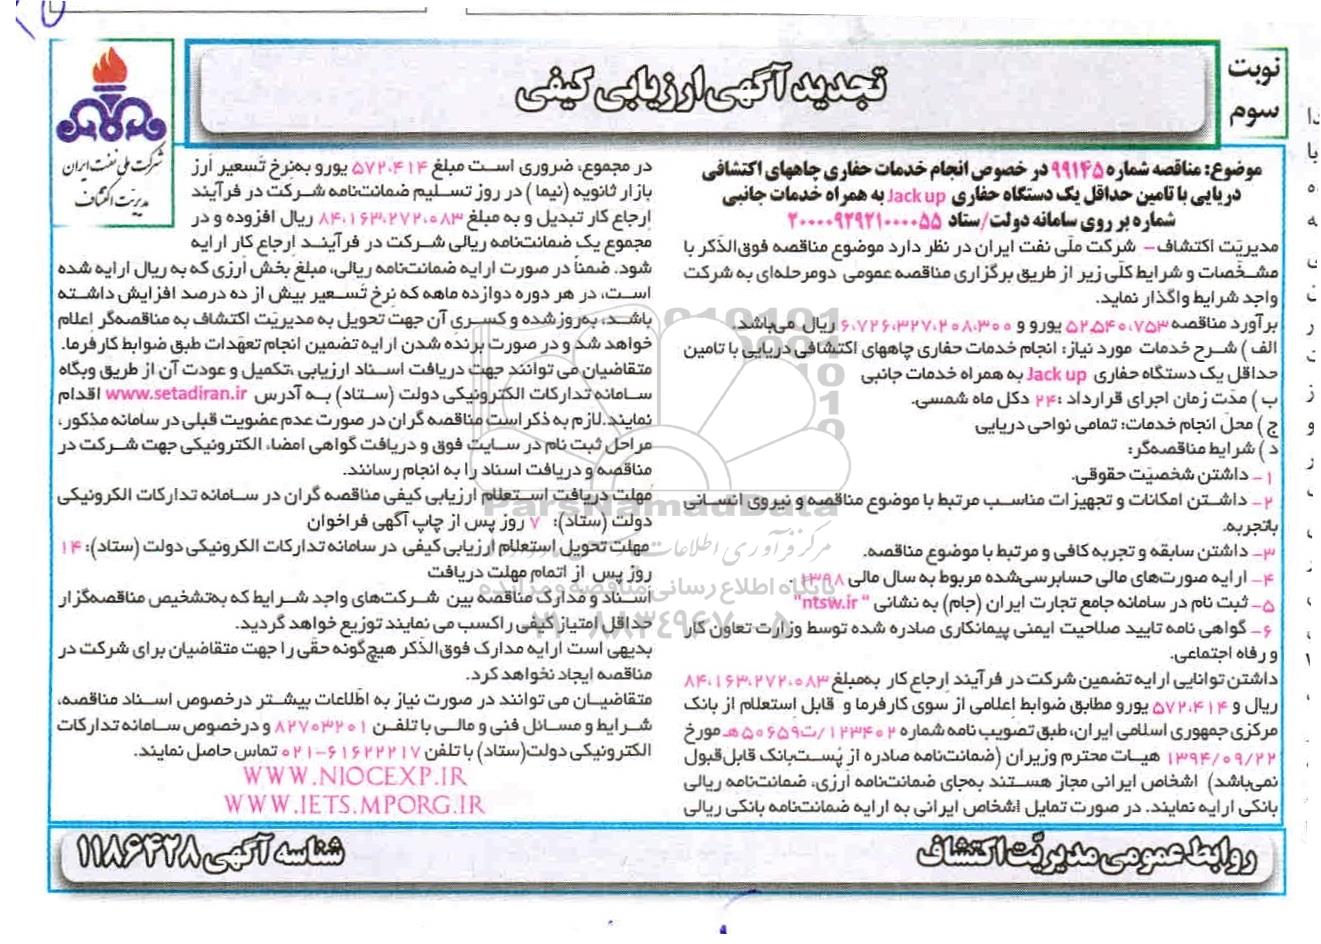 نوبت
سوم
تجدید آگهی ارزیابی کیفی
شرکت ملی نفت ایران
مدیریت اکتشاف
موضوع: مناقصه شماره ۹۹۱۴۵ در خصوص انجام خدمات حفاری چاههای اکتشافی
دریایی با تامین حداقل یک دستگاه حفاری Jack up به همراه خدمات جانبی
شماره بر روی سامانه دولت/ستاد ۲۰۰۰۰۹۲۹۲۱۰۰۰۰۵۵
مدیریّت اکتشاف– شرکت ملّی نفت ایران در نظر دارد موضوع مناقصه فوق‌الذّکر با
مشخّصات و شرایط کلّی زیر از طریق برگزاری مناقصه عمومی دومرحله‌ای به شرکت
واجد شرایط واگذار نماید.
برآورد مناقصه ۵۲,۵۴۰,۷۵۳ یورو و ۶,۷۲۶,۳۲۷,۲۰۸,۳۰۰ ریال می‌باشد.
الف ) شرح خدمات مورد نیاز: انجام خدمات حفاری چاههای اکتشافی دریایی با تامین
حداقل یک دستگاه حفاری Jack up به همراه خدمات جانبی
ب ) مدّت زمان اجرای قرارداد :۲۴ دکل ماه شمسی.
ج ) محلّ انجام خدمات: تمامی نواحی دریایی
د ) شرایط مناقصه‌گر:
۱ – داشتن شخصیّت حقوقی.
۲– داشتن امکانات و تجهیزات مناسب مرتبط با موضوع مناقصه و نیروی انسانی
باتجربه.
۳– داشتن سابقه و تجربه کافی و مرتبط با موضوع مناقصه.
۴– ارایه صورت‌های مالی حسابرسی‌شده مربوط به سال مالی ۱۳۹۸ .
۵– ثبت نام در سامانه جامع تجارت ایران (جام) به نشانی " ntsw.ir"
۶– گواهی نامه تایید صلاحیت ایمنی پیمانکاری صادره شده توسط وزارت تعاون کار
و رفاه اجتماعی.
داشتن توانایی ارایه تضمین شرکت در فرآیند ارجاع کار به‌مبلغ ۸۴,۱۶۳,۲۷۲,۰۸۳
ریال و ۵۷۲,۴۱۴ یورو مطابق ضوابط اعلامی از سوی کارفرما و قابل استعلام از بانک
مرکزی جمهوری اسلامی ایران، طبق تصویب نامه شماره ۱۲۳۴۰۲/ت۵۰۶۵۹هـ مورخ
۱۳۹۴/۰۹/۲۲ هیات محترم وزیران (ضمانت‌نامه صادره از پُست‌بانک قابل‌قبول
نمی‌باشد) اشخاص ایرانی مجاز هستند به‌جای ضمانت‌نامه ارزی، ضمانت‌نامه ریالی
بانکی ارایه نمایند. در صورت تمایل اشخاص ایرانی به ارایه ضمانت‌نامه بانکی ریالی
در مجموع، ضروری است مبلغ ۵۷۲,۴۱۴ یورو به‌نرخ تَسعیر اَرز
بازار ثانویه (نیما ) در روز تسلیم ضمانت‌نامه شرکت در فرآیند
اِرجاع کار تبدیل و به مبلغ ۸۴,۱۶۳,۲۷۲,۰۸۳ ریال افزوده و در
مجموع یک ضمانت‌نامه ریالی شرکت در فرآیند اِرجاع کار ارایه
شود. ضمناً در صورت ارایه ضمانت‌نامه ریالی، مبلغ بخش ارزی که به ریال ارایه شده
است، در هر دوره دوازده ماهه که نِرخ تَسعیر بیش از ده درصد افزایش داشته
باشد، به‌روز شده و کسری آن جهت تحویل به مدیریّت اکتشاف به مناقصه‌گر اِعلام
خواهد شد و در صورت برنده شدن ارایه تضمین انجام تعهّدات طبق ضوابط کارفرما.
متقاضیان می توانند جهت دریافت اسناد ارزیابی ،تکمیل و عودت آن از طریق وبگاه
سامانه تدارکات الکترونیکی دولت (ستاد) به آدرس www.setadiran.ir اقدام
نمایند.لازم به ذکر است مناقصه گران در صورت عدم عضویت قبلی در سامانه مذکور،
مراحل ثبت نام در سایت فوق و دریافت گواهی امضاء الکترونیکی جهت شرکت در
مناقصه و دریافت اسناد را به انجام رسانند.
مُهلت دریافت استعلام ارزیابی کیفی مناقصه گران در سامانه تدارکات الکرونیکی
دولت (ستاد): ۷ روز پس از چاپ آگهی فراخوان
مهلت تحویل استعلام ارزیابی کیفی در سامانه تدارکات الکترونیکی دولت (ستاد): ۱۴
روز پس از اتمام مهلت دریافت
اسناد و مدارک مناقصه بین شرکت‌های واجد شرایط که به‌تشخیص مناقصه‌گزار
حداقل امتیاز کیفی را کسب می نمایند توزیع خواهد گردید.
بدیهی است ارایه مدارک فوق‌الذّکر هیچ‌گونه حقّی را جهت متقاضیان برای شرکت در
مناقصه ایجاد نخواهد کرد.
متقاضیان می توانند در صورت نیاز به اطّلاعات بیشتر درخصوص اسناد مناقصه،
شرایط و مسائل فنی و مالی با تلفن ۸۲۷۰۳۲۰۱ و درخصوص سامانه تدارکات
الکترونیکی دولت(ستاد) با تلفن ۰۲۱-۶۱۶۲۲۲۱۷ تماس حاصل نمایند.
WWW.NIOCEXP.IR
WWW.IETS.MPORG.IR
روابط عمومی مدیریّت اکتشاف
شناسه آگهی ۱۱۸۶۴۲۸
ParsNamadData
پایگاه اطلاع رسانی مناقصه و مزایده